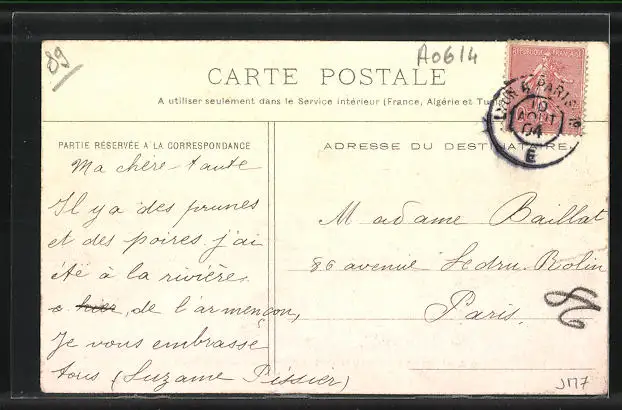 89
A0614
CARTE POSTALE
A utiliser seulement dans le Service intérieur (France, Algérie et Tu
REPUBLIQUE FRANÇAISE
LYON A PARIS
10
AOUT
04
E
PARTIE RÉSERVÉE A LA CORRESPONDANCE
ADRESSE DU DESTINATAIRE
Ma chère tante
Il y a des prunes
et des poires j'ai
été à la rivière
hier, de l'armençon,
Je vous embrasse
tous (Suzanne Pissier)
Madame Baillat
86 avenue Ledru-Rolin
Paris.
JM7